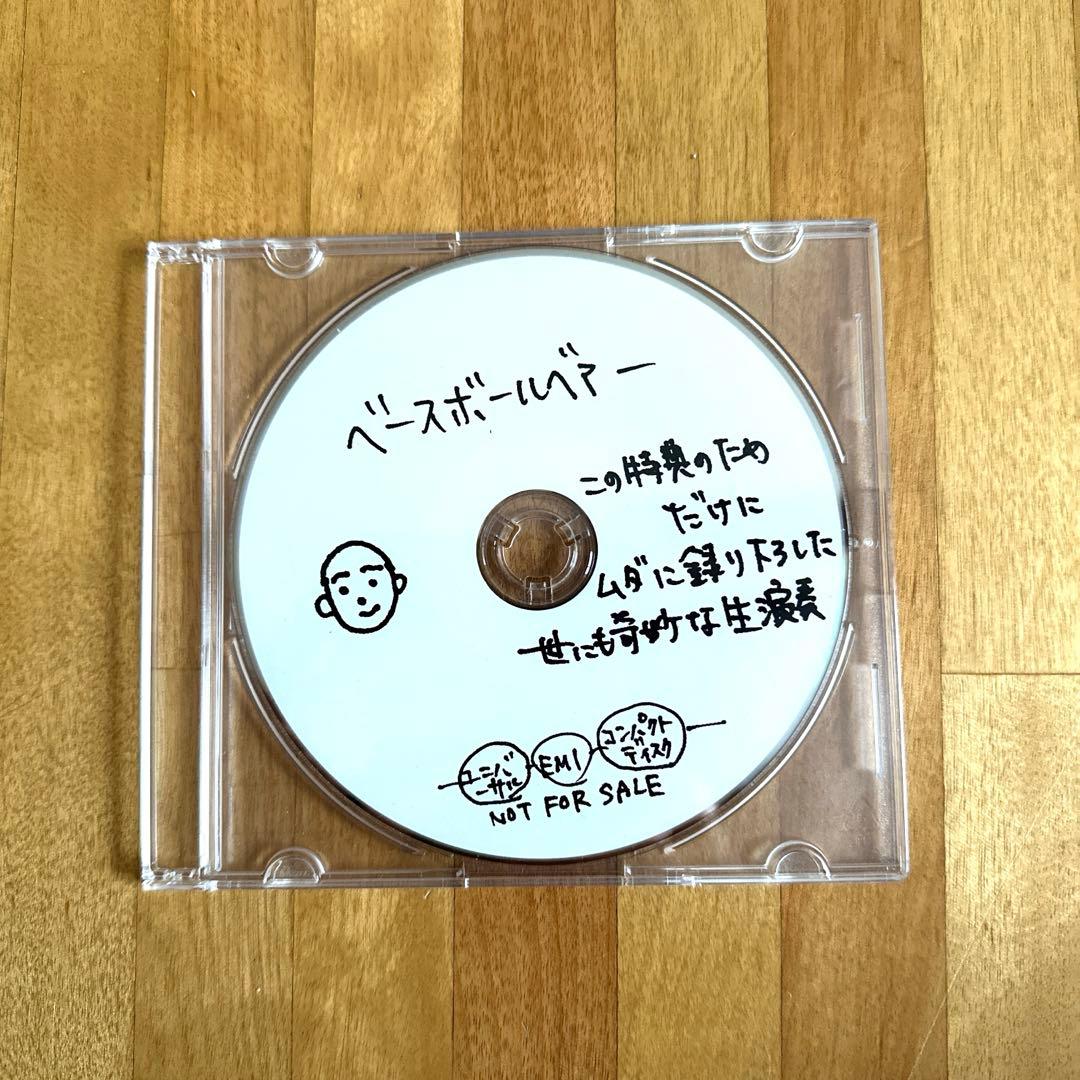 ベースボールベアー
この特典のため
だけに
ムダに録り下ろした
世にも奇妙な生演奏
ユニバ
ーサル
EMI
コンパクト
ディスク
NOT FOR SALE